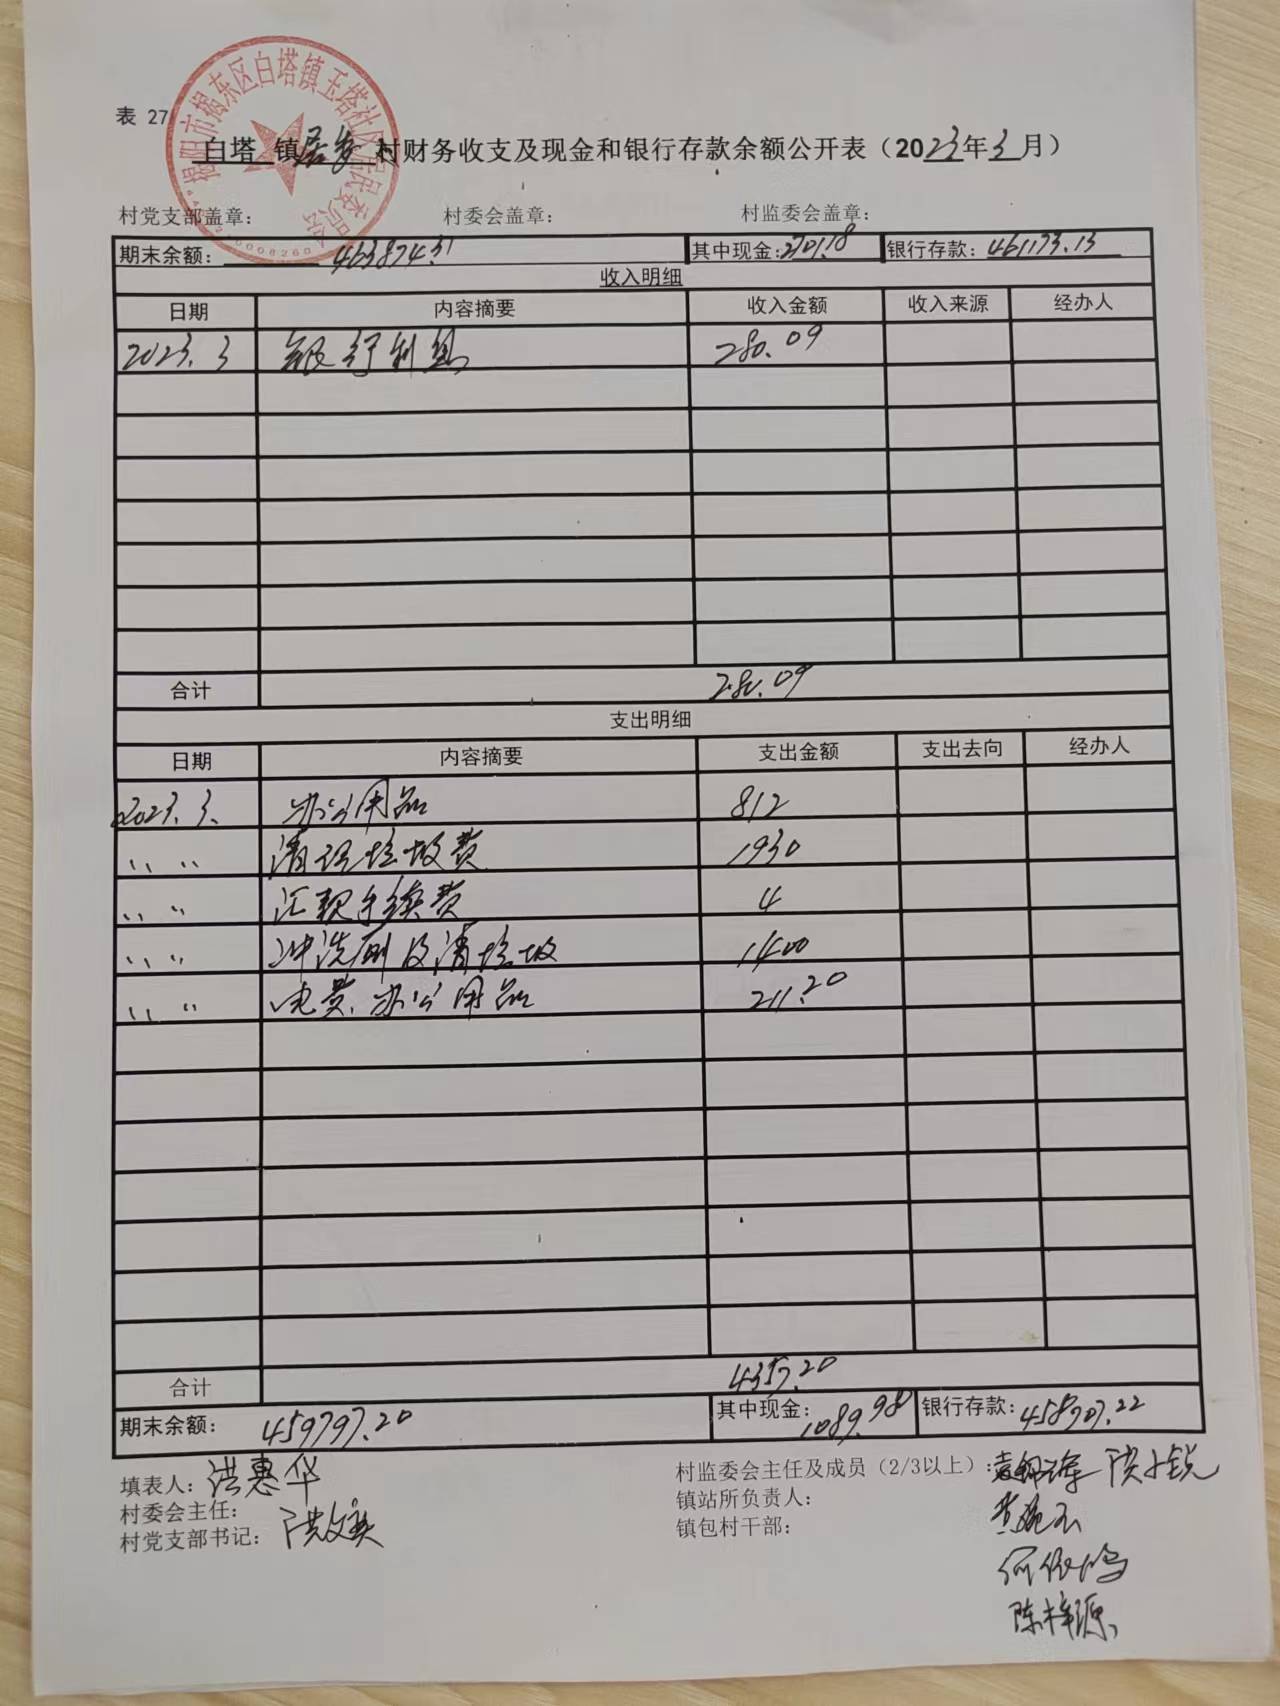 揭阳市揭东区白塔镇玉塔社区居民委员会
表 27
白塔 镇居委村财务收支及现金和银行存款余额公开表（2023年3月）
村党支部盖章： 村委会盖章： 村监委会盖章：
期末余额： 463874.31 其中现金：2701.18 银行存款：461173.13
收入明细
日期 内容摘要 收入金额 收入来源 经办人
2023.3 银行利息 280.09
合计 280.09
支出明细
日期 内容摘要 支出金额 支出去向 经办人
2023.3. 办公用品 812
〃 〃 清理垃圾费 1930
〃 〃 汇款手续费 4
〃 〃 冲洗厕及清垃圾 1400
〃 〃 电费、办公用品 211.20
合计 4357.20
期末余额： 459797.20 其中现金：1089.98 银行存款：458707.22
填表人：洪惠华 村监委会主任及成员（2/3以上）：
村委会主任： 镇站所负责人：
村党支部书记： 镇包村干部：
陈梓源